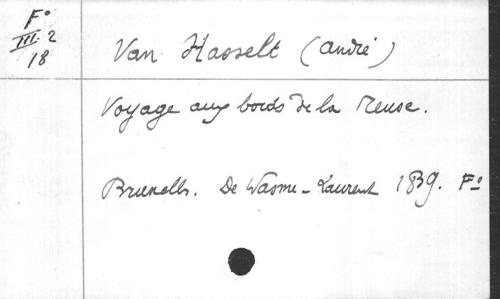 F°
III. 2
18
Van Hasselt (André)
Voyage aux bords de la Meuse.
Bruxelles. De Wasme-Laurent 1839. F°